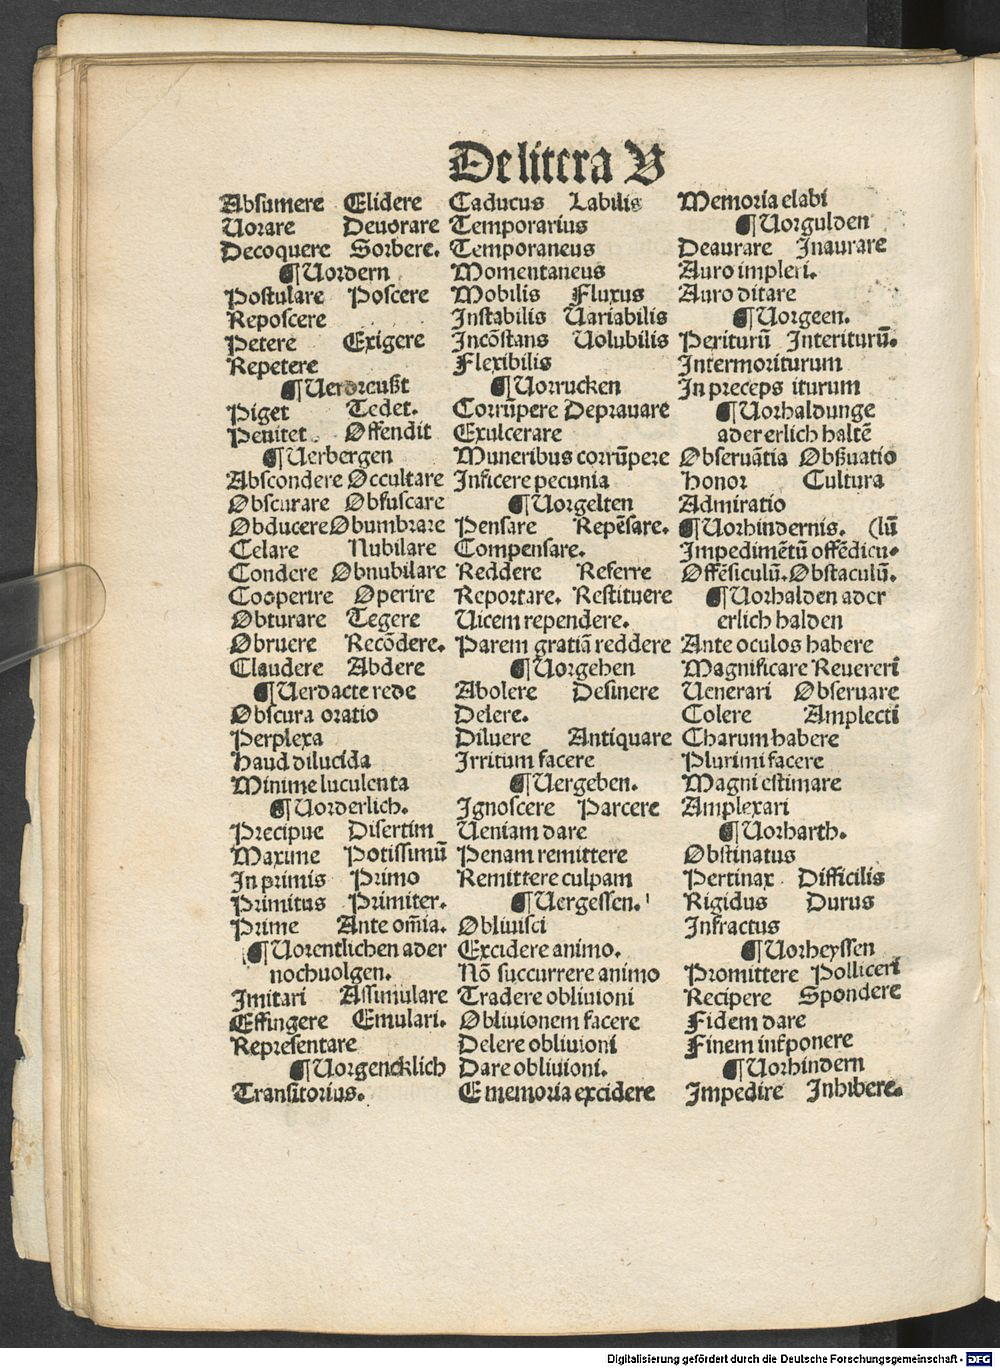 De litera V
Absumere Elidere
Uorare Deuorare
Decoquere Sorbere.
¶ Uordern
Postulare Poscere
Reposcere
Petere Exigere
Repetere
¶ Uerdreußt
Piget Tedet.
Penitet. Offendit
¶ Uerbergen
Abscondere Occultare
Obscurare Obfuscare
Obducere Obumbrare
Celare Nubilare
Condere Obnubilare
Cooperire Operire
Obturare Tegere
Obruere Recōdere.
Claudere Abdere
¶ Uerdacte rede
Obscura oratio
Perplexa
haud dilucida
Minime luculenta
¶ Uorderlich.
Precipue Disertim
Maxime Potissimū
In primis Primo
Primitus Primiter.
Prime Ante om̄ia.
¶ Uorentlichen ader
nochuolgen.
Imitari Assimulare
Effingere Emulari.
Representare
¶ Uorgencklich
Transitorius.
Caducus Labilis
Temporarius
Temporaneus
Momentaneus
Mobilis Fluxus
Instabilis Uariabilis
Incōstans Uolubilis
Flexibilis
¶ Uorrucken
Corrūpere Deprauare
Exulcerare
Muneribus corrūpere
Inficere pecunia
¶ Uorgelten
Pensare Repēsare.
Compensare.
Reddere Referre
Reportare. Restituere
Uicem rependere.
Parem gratiā reddere
¶ Uorgehen
Abolere Desinere
Delere.
Diluere Antiquare
Irritum facere
¶ Uergeben.
Ignoscere Parcere
Ueniam dare
Penam remittere
Remittere culpam
¶ Uergessen.
Obliuisci
Excidere animo.
Nō succurrere animo
Tradere obliuioni
Obliuionem facere
Delere obliuioni
Dare obliuioni.
E memoria excidere
Memoria elabi
¶ Uorgulden
Deaurare Inaurare
Auro impleri.
Auro ditare
¶ Uorgeen.
Periturū Interiturū.
Intermoriturum
In preceps iturum
¶ Uorhaldunge
ader erlich haltē
Obseruātia Obßuatio
honor Cultura
Admiratio
¶ Uorhindernis. (lū
Impedimētū offēdicu-
Offēsiculū. Obstaculū.
¶ Uorhalden ader
erlich halden
Ante oculos habere
Magnificare Reuereri
Uenerari Obseruare
Colere Amplecti
Charum habere
Plurimi facere
Magni estimare
Amplexari
¶ Uorharth.
Obstinatus
Pertinax Difficilis
Rigidus Durus
Infractus
¶ Uorheyssen
Promittere Polliceri
Recipere Spondere
Fidem dare
Finem inṗponere
¶ Uorhindern
Impedire Inhibere.
Digitalisierung gefördert durch die Deutsche Forschungsgemeinschaft - DFG